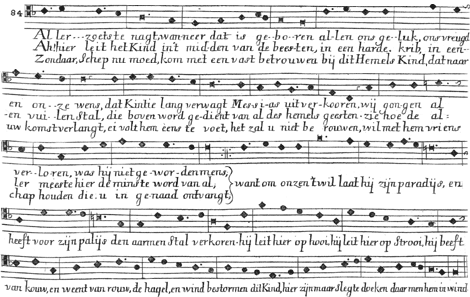 84
Al ler...zoetste nagt, wanneer dat is ge-bo-ren al-len ons ge-luk, ons vreugd
Ah! hier leit het Kind in't mid-den van de bees-ten, in een harde. krib, in een-
Zondaar, schep nu moed, kom met een vast betrouwen bij dit Hemels Kind, dat naar
en on--ze wens, dat Kintie lang verwagt Mess i-as uit ver-kooren, wij gon-gen al
en vui-len Stal, die boven word ge-dient van al des hemels geesten zie hoe de al:
uw komst verlangt, ei volt hem eens te voet, het zal u niet be rouwen, wil met hem vriens
ver-lo-ren, was hij niet ge-wor-den mens,
ler meeste hier de minste word van al, want om onzen't wil laat hij zijn paradijs, en
chap houden die u in ge-naad ontvangt,
heeft voor zijn palijs den aarmen Stal verkoren. hij leit hier op hooi, hij leit hier op Strooi, hij beeft
van kouw, en weent van rouw, de hagel, en wind bestormen dit Kind, hier zijn maar slegte doeken daar men hem in wind